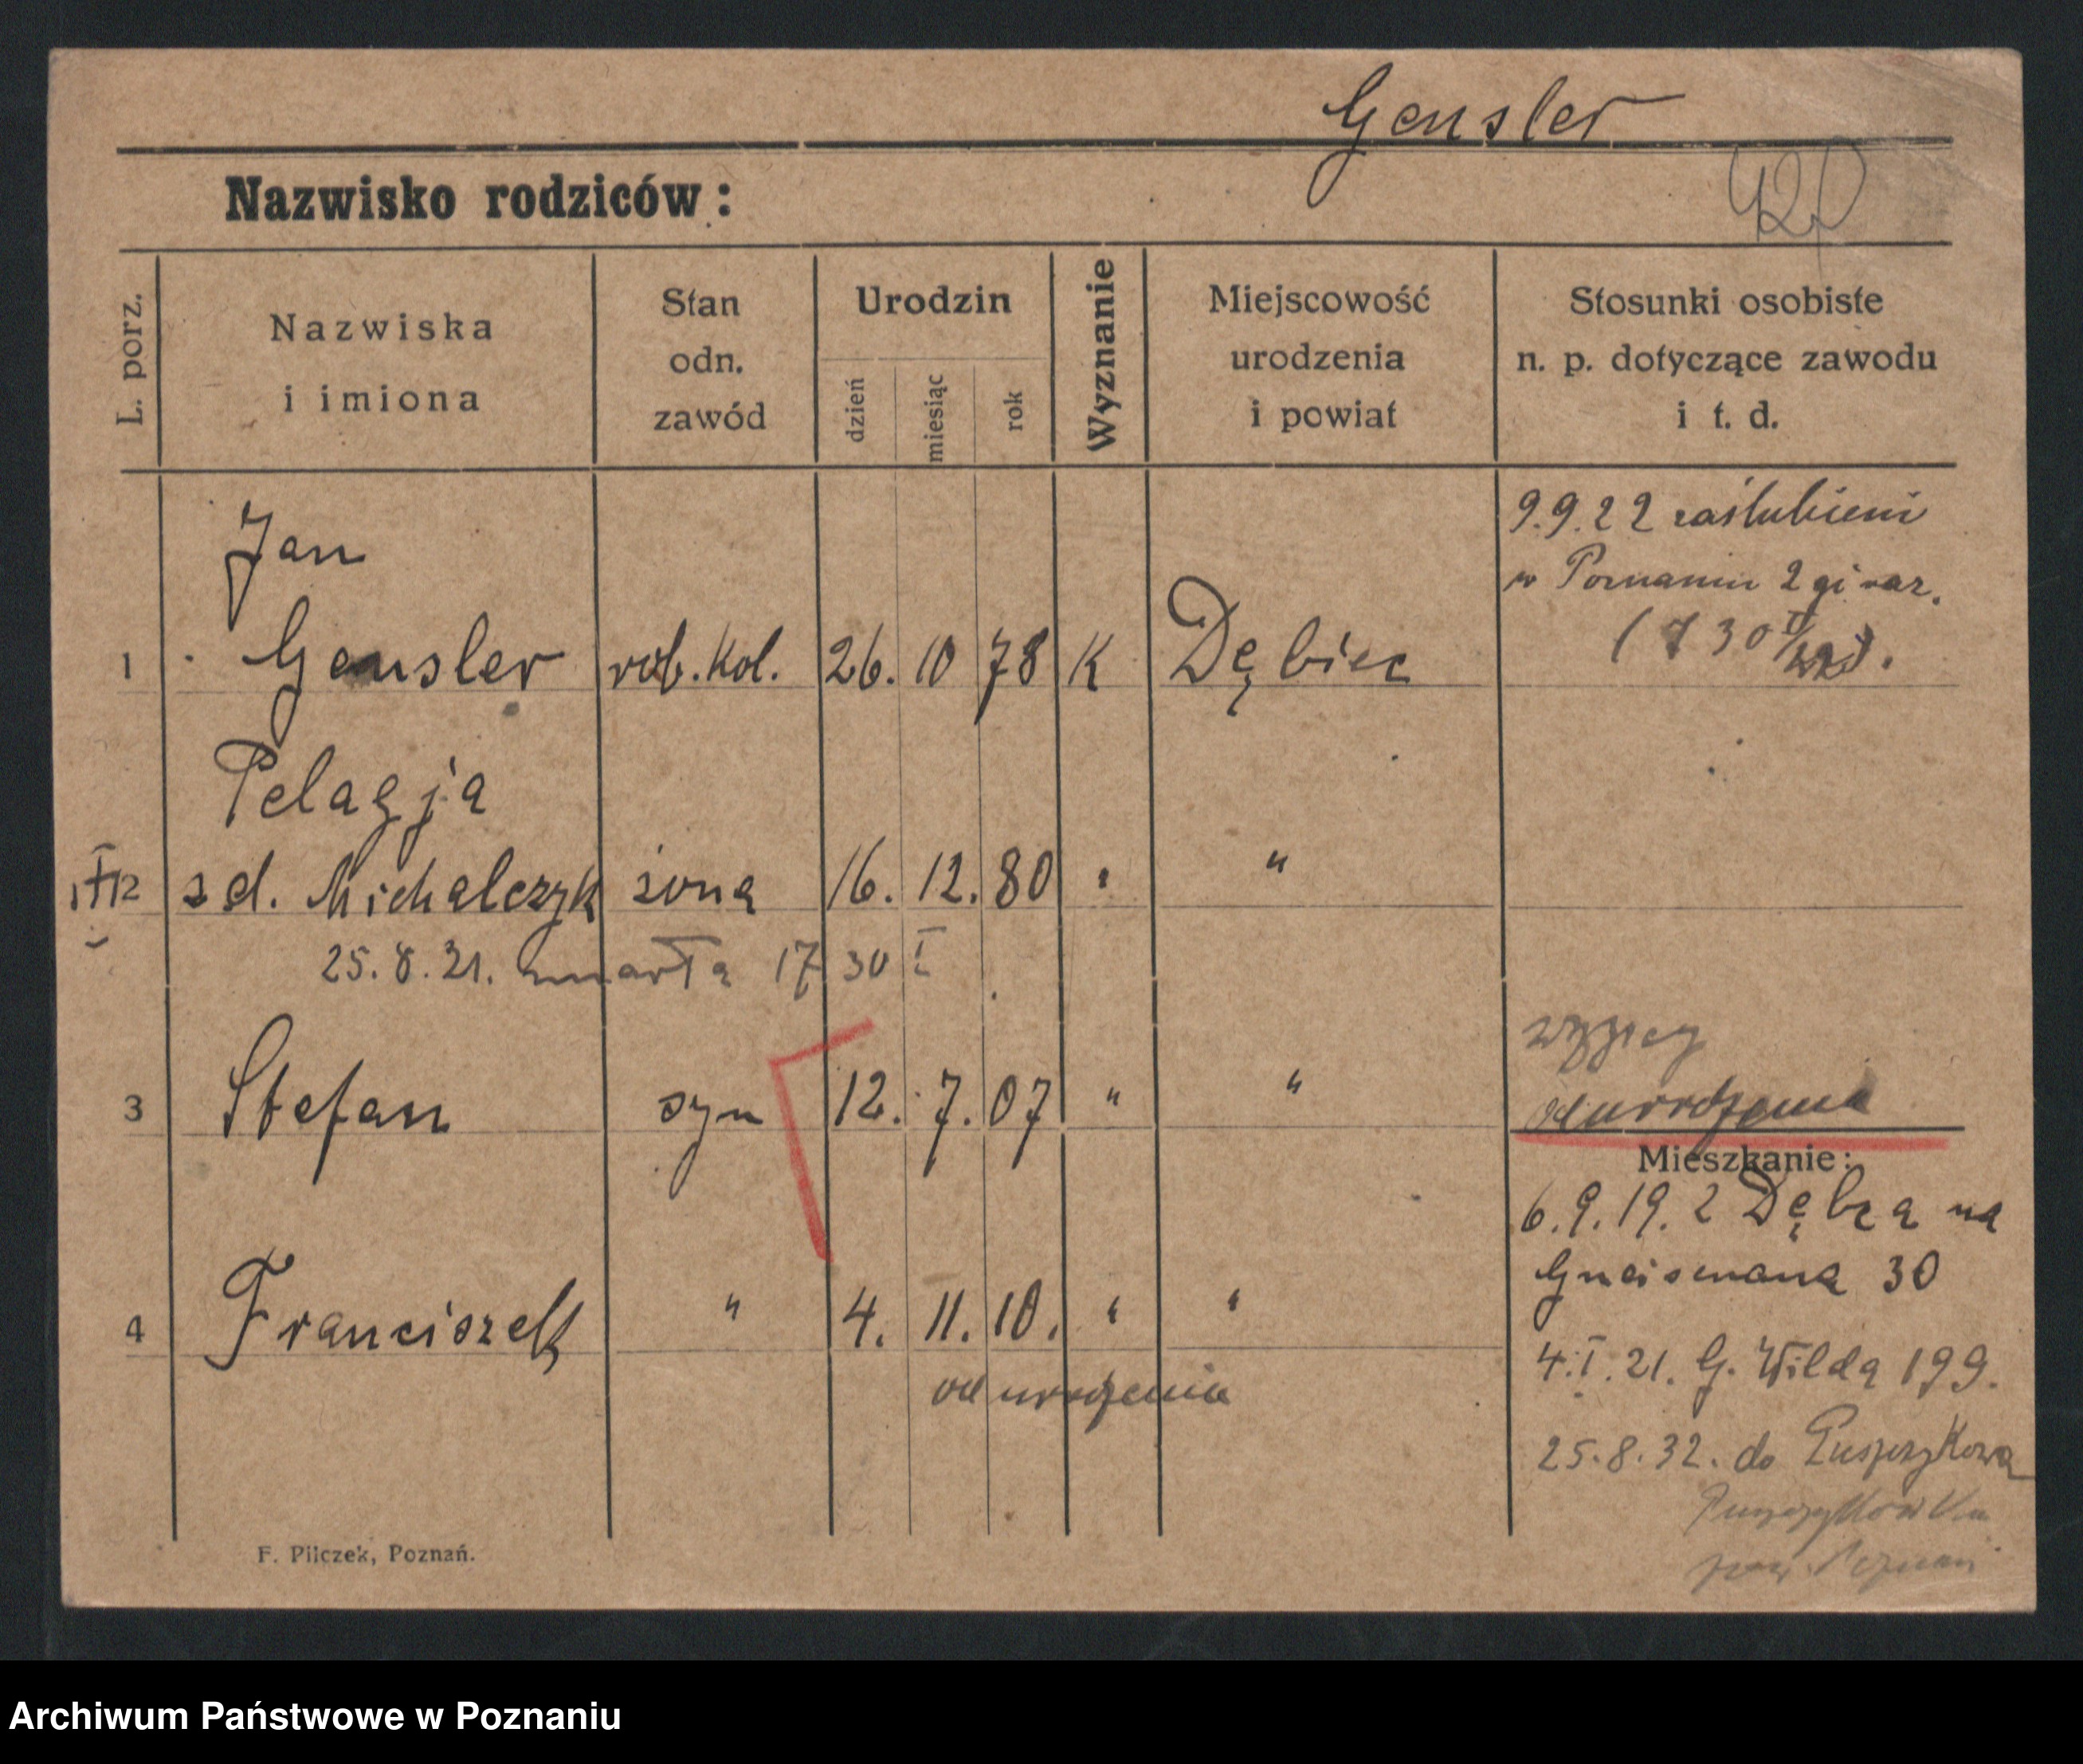 Gensler
Nazwisko rodziców:
L. porz.
Nazwiska
i imiona
Stan
odn.
zawód
Urodzin
dzień
miesiąc
rok
Wyznanie
Miejscowość
urodzenia
i powiat
Stosunki osobiste
n. p. dotyczące zawodu
i t. d.
9.9.22 zaślubieni
w Poznaniu 2gi raz.
Jan
1 Gensler rob. kol. 26. 10 78 K Dębiec
Pelagja
2 z d. Michalczyk żona 16. 12. 80 " "
25.8.21. zmarła 17 30 I
3 Stefan syn 12. 7. 07 " "
od urodzenia
Mieszkanie:
6.9.19. z Dębca na
Gneisenaua 30
4 Franciszek " 4. 11. 10. " "
od urodzenia
4.I.21. G. Wilda 199.
25.8.32. do Puszczykowa
pow. Poznań
F. Pilczek, Poznań.
Archiwum Państwowe w Poznaniu